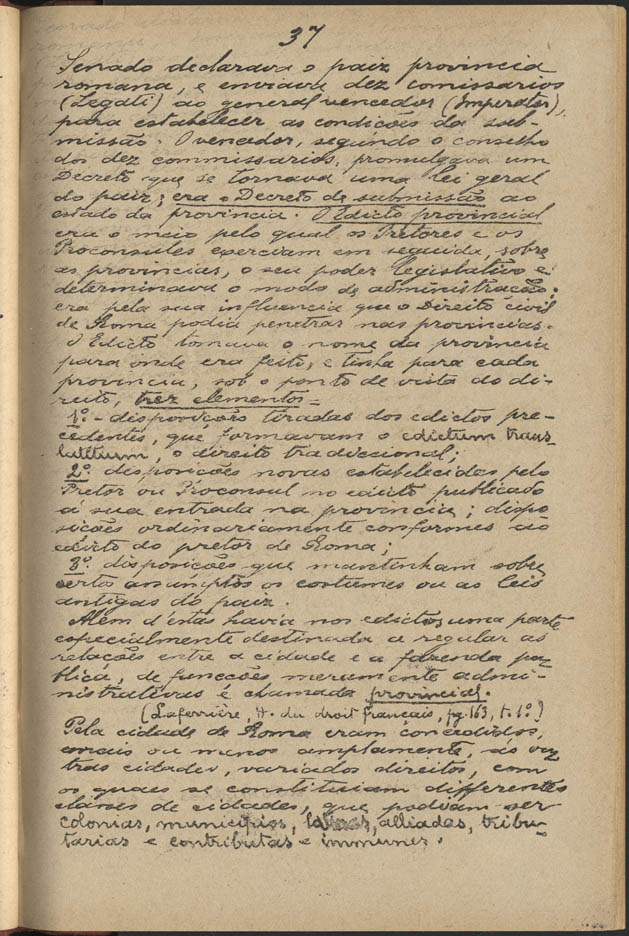 37
Senado declarava o paiz provincia
romana, e enviava dez comissarios
(Legati) ao general vencedor (Imperator),
para estabelecer as condições da sub-
missão. O vencedor, segundo o conselho
dos dez commissarios, promulgava um
Decreto que se tornava uma lei geral
do paiz; era o Decreto de submissão ao
estado da provincia. O Edicto provincial
era o meio pelo qual os Pretores e os
Proconsules exerciam em seguida, sobre
as provincias, o seu poder legislativo e
determinava o modo de administração;
era pela sua influencia que o Direito civil
de Roma podia penetrar nas provincias.
O Edicto tomava o nome da provincia
para onde era feito, e tinha para cada
provincia, sob o ponto de vista do di-
reito, trez elementos =
1º - disposições tiradas dos edictos pre-
cedentes, que formavam o edictum trans-
latitium, o direito tradiccional;
2º. disposições novas estabelecidas pelo
Pretor ou Proconsul no edicto publicado
á sua entrada na provincia; dispo
sições ordinariamente conformes ao
edicto do pretor de Roma;
3º. disposições que mantinham sobre
certo assumptos os costumes ou as leis
antigas do paiz.
Além d'estas havia nos edictos, uma parte
especialmente destinada a regular as
relações entre a cidade e a fazenda pu-
blica, de funcções meramente admi-
nistrativas é chamada provincial.
(Laferrière, H. du droit français, pg. 163, t. 1º)
Pela cidade de Roma eram concedidos,
mais ou menos amplamente, ás ou-
tras cidades, variados direitos, com
os quaes se constituiam differentes
classes de cidades, que podiam ser
colonias, municipios, latinas, alliadas, tribu-
tarias e contributas e immunes.